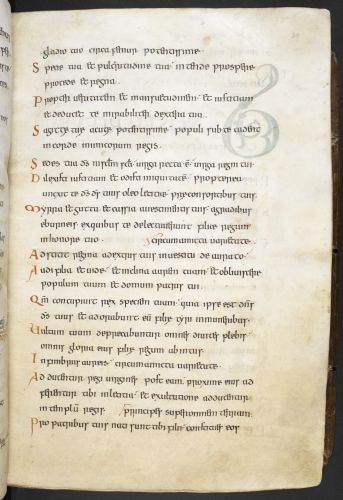 gladio tuo circa femur potentissime.
Specie tua et pulchritudine tua intende prospere
procede et regna.
Propter ueritatem et mansuetudinem et iustitiam
et deducet te mirabiliter dextera tua.
Sagitte tue acute potentissime populi sub te cadent
in corde inimicorum regis.
Sedes tua ds in sclm scli uirga recta e uirga regni tui.
Dilexisti iustitiam et odisti iniquitatem propterea
unxit te ds ds tuus oleo letitiae pre consortibus tuis
Myrra et gutta et cassia a uestimentis tuis a gradibus
eburneis ex quibus te delectauerunt filie regum
in honore tuo. circumamicta uarietate.
Adstetit regina a dextris tuis in uestitu deaurato
Audi filia et uide et inclina aurem tuam et obliuiscere
populum tuum et domum patris tui.
Qm concupiuit rex speciem tuam quia ipse est dns
ds tuus et adorabunt eu filie tyri in muneribus.
Uultum tuum deprecabuntur omnes diuites plebis
omnis gloria eius filie regum ab intus.
In fimbriis aureis circumamicta uarietate.
Adducentur regi uirgines post eam proxime eius ad
ferentur tibi in letitia et exultatione adducentur
in templu regis. principes super omnem terram.
Pro patribus tuis nati sunt tibi filii constitues eos